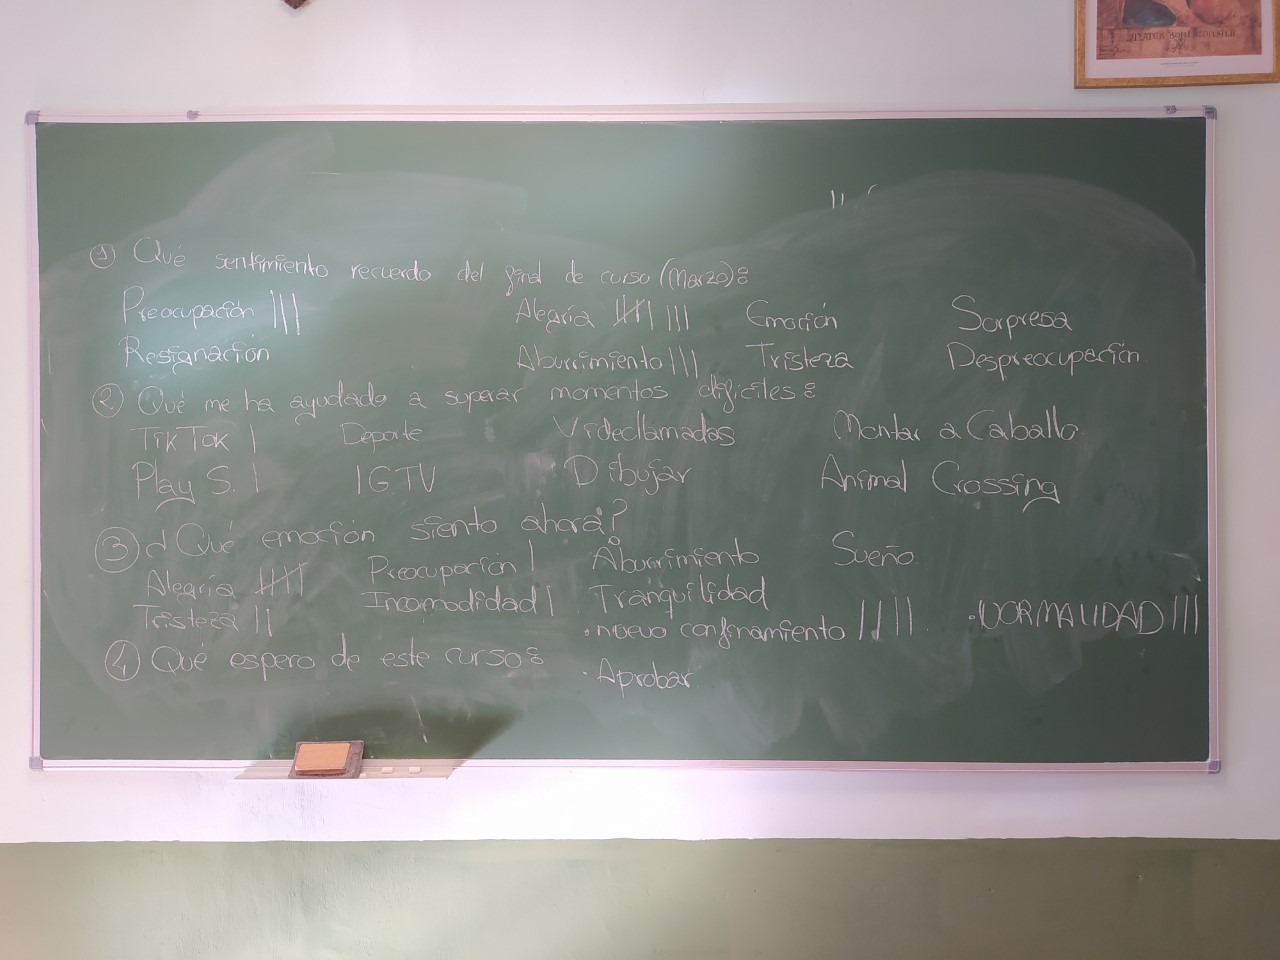 BEATUS BONI CONSILII
① Qué sentimiento recuerdo del final de curso (Marzo):
Preocupación ||| Alegría |||| ||| Emoción Sorpresa
Resignación Aburrimiento ||| Tristeza Despreocupación
② Qué me ha ayudado a superar momentos difíciles:
TikTok | Deporte Videollamadas Montar a Caballo
Play S. | IGTV Dibujar Animal Crossing
③ ¿Qué emoción siento ahora?
Alegría |||| Preocupación | Aburrimiento Sueño
Tristeza || Incomodidad | Tranquilidad
④ Qué espero de este curso:
· nuevo confinamiento |||| · NORMALIDAD |||
· Aprobar